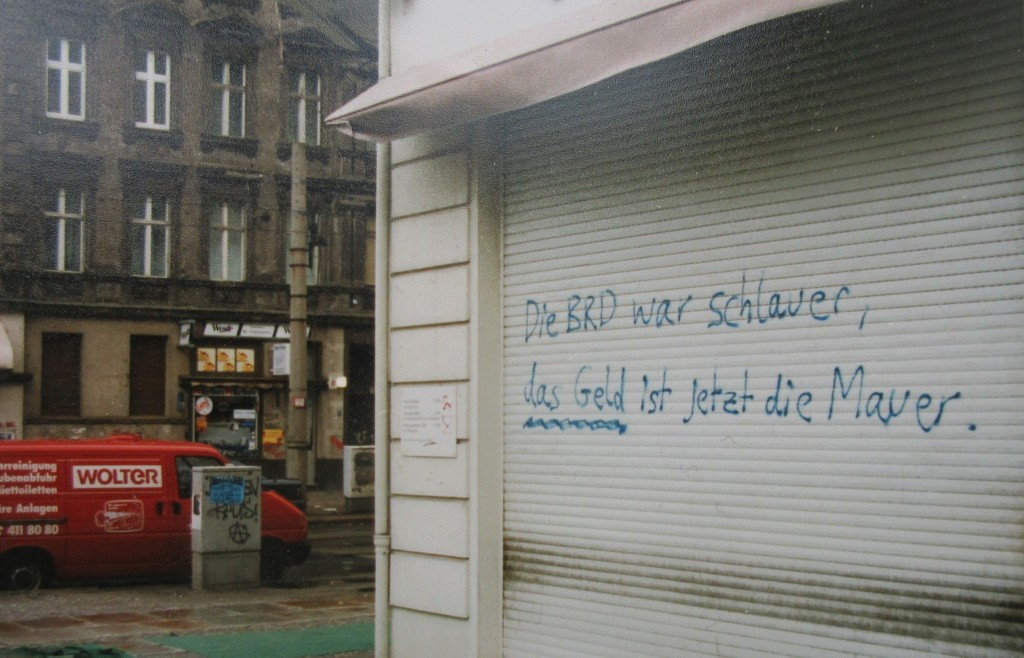 Die BRD war schlauer,
das Geld ist jetzt die Mauer.
WOLTER
hrreinigung
ubenabfuhr
liettoiletten
äre Anlagen
411 80 80